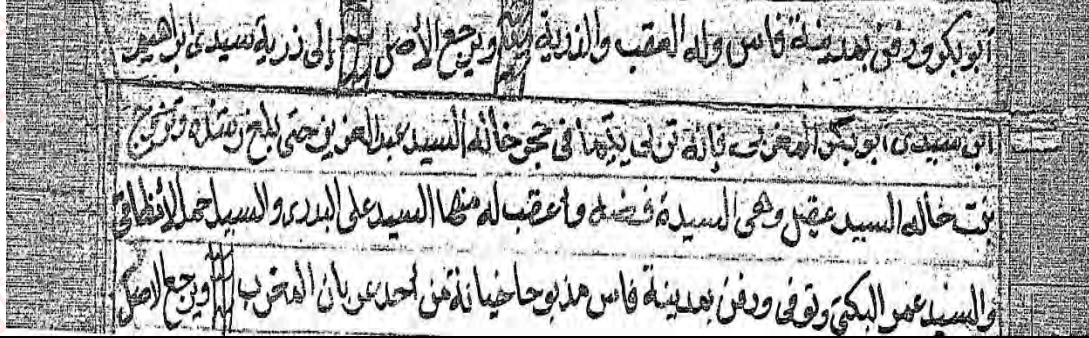 أبوبكر ودفن بمدينة فاس وله العقب والذرية ويرجع الأصل إلى ذرية سيدى ابراهيم
ابن سيدى أبوبكر المغربى فإنه تربى يتيما فى حجر خاله السيد عبد العزيز حتى بلغ رشده وتزوج
بنت خاله السيد عقيل وهى السيدة فضه وأعقب له منها السيد على البدرى والسيد احمد
والسيد عمر وتوفى ودفن بمدينة فاس مذبوحا خيانة من أحد عربان المغرب ويرجع الاصل